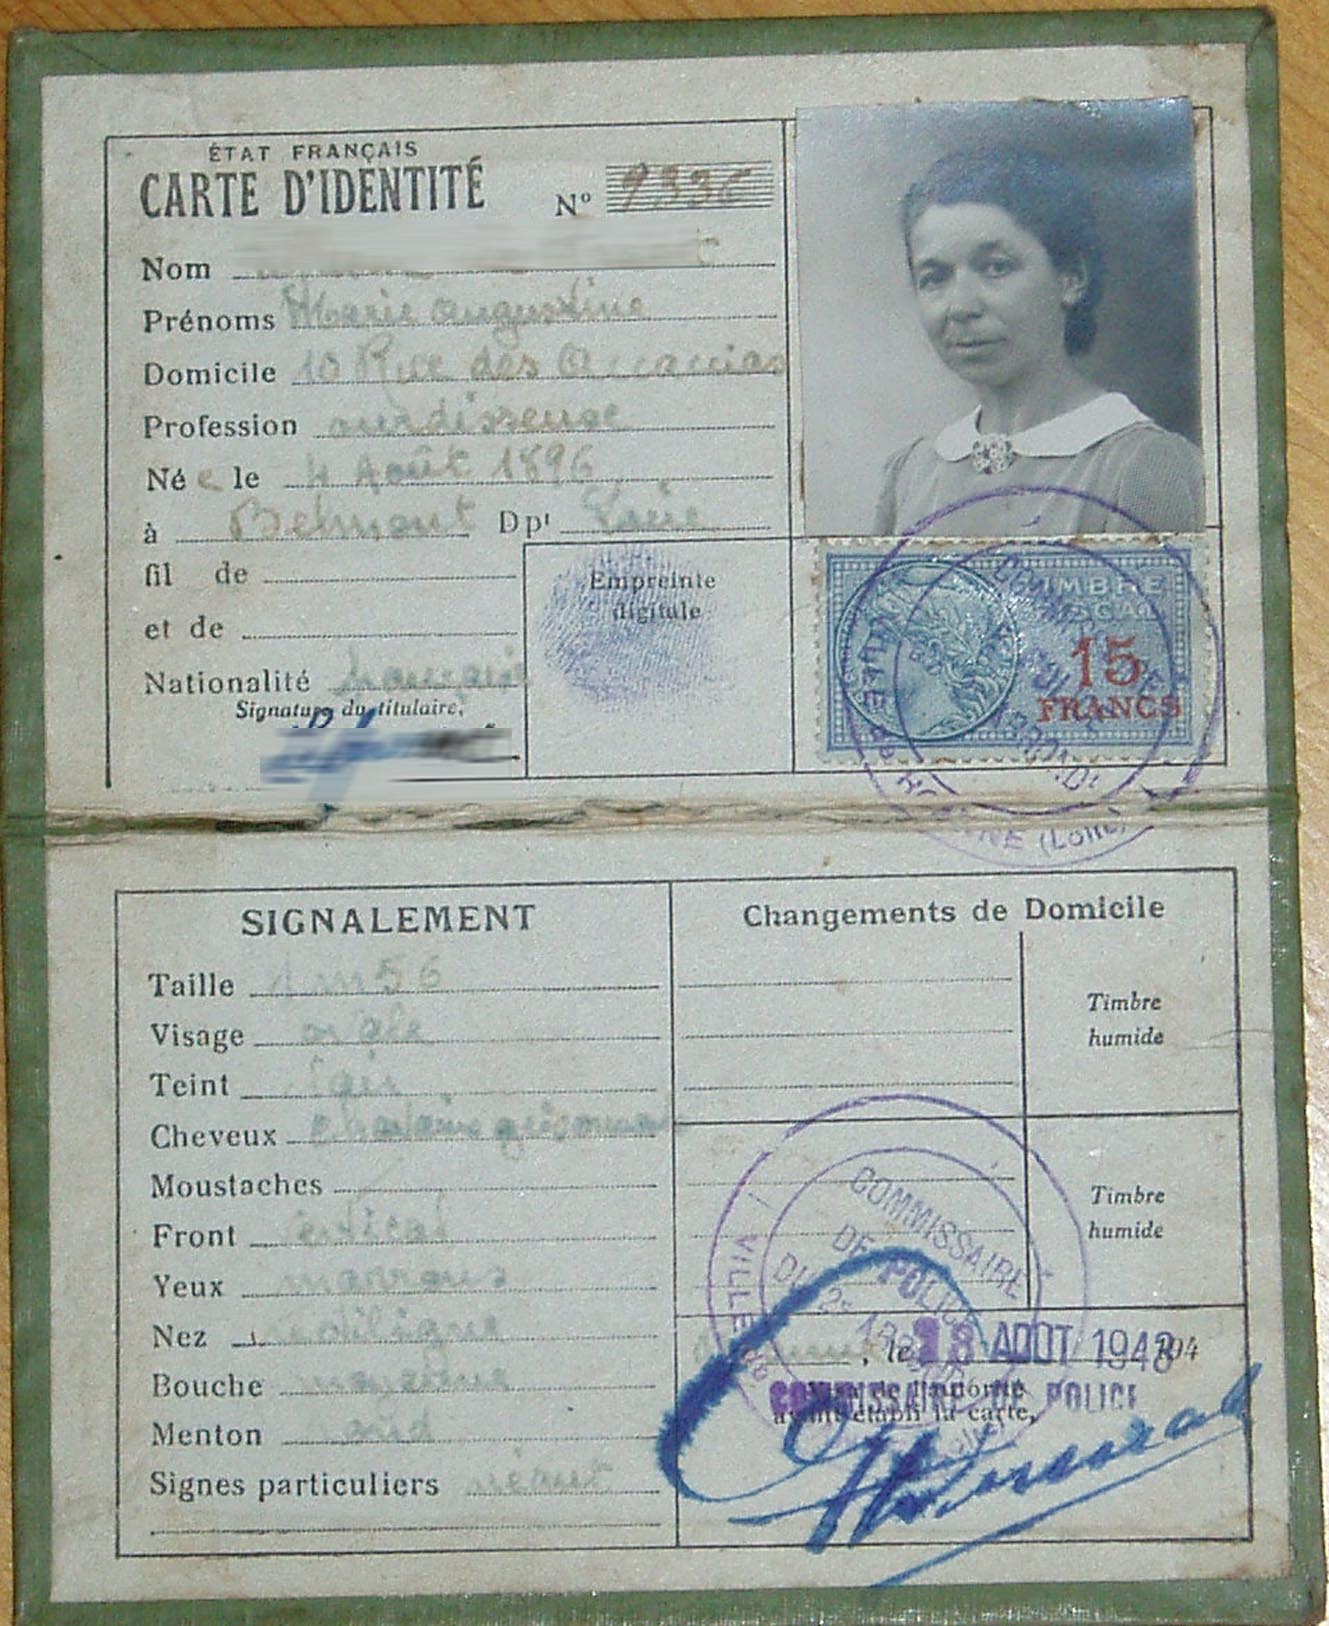 ÉTAT FRANÇAIS
CARTE D'IDENTITÉ
Nº 9336
Nom
Prénoms Marie Augustine
Domicile 10 Rue des Accacias
Profession ourdisseuse
Née le 4 Août 1896
à Belmont Dpt Loire
fil de
et de
Nationalité française
Signature du titulaire,
Empreinte
digitale
TIMBRE
FISCAL
15
FRANCS
COMMISSAIRE
VILLE de ROANNE (Loire)
SIGNALEMENT
Taille 1m56
Visage ovale
Teint clair
Cheveux chatains grisonnants
Moustaches
Front vertical
Yeux marrons
Nez rectiligne
Bouche moyenne
Menton rond
Signes particuliers néant
Changements de Domicile
Timbre
humide
Timbre
humide
COMMISSAIRE
DE POLICE
DU 2e
VILLE de
, le 13 AOUT 1943 194
COMMISSAIRE DE POLICE
Visa de l'autorité
ayant établi la carte,